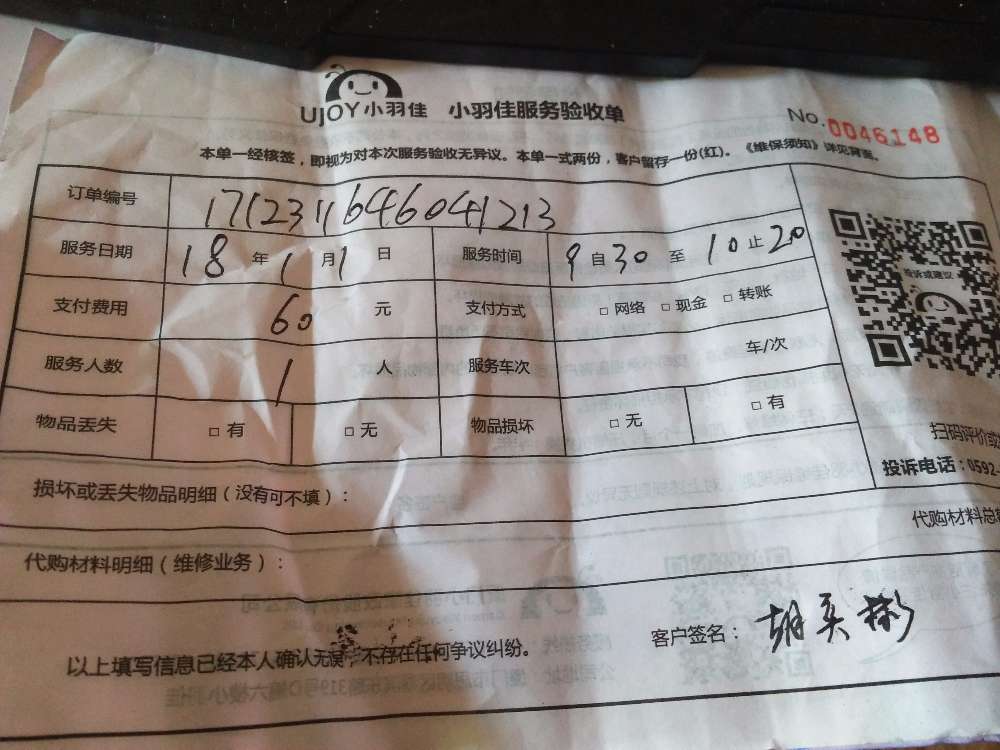 UJOY小羽佳 小羽佳服务验收单 No.0046148
本单一经核签，即视为对本次服务验收无异议。本单一式两份，客户留存一份(红)。《维保须知》详见背面。
订单编号 171231164604 1213
服务日期 18 年 1 月 1 日 服务时间 9 自 30 至 10 止 20
支付费用 60 元 支付方式 □ 网络 □ 现金 □ 转账
投诉或建议
服务人数 1 人 服务车次 车/次
物品丢失 □ 有 □ 无 物品损坏 □ 无 □ 有
扫码评价或
投诉电话：0592-
损坏或丢失物品明细（没有可不填）：
代购材料总
代购材料明细（维修业务）：
以上填写信息已经本人确认无误，不存在任何争议纠纷。 客户签名：胡英彬